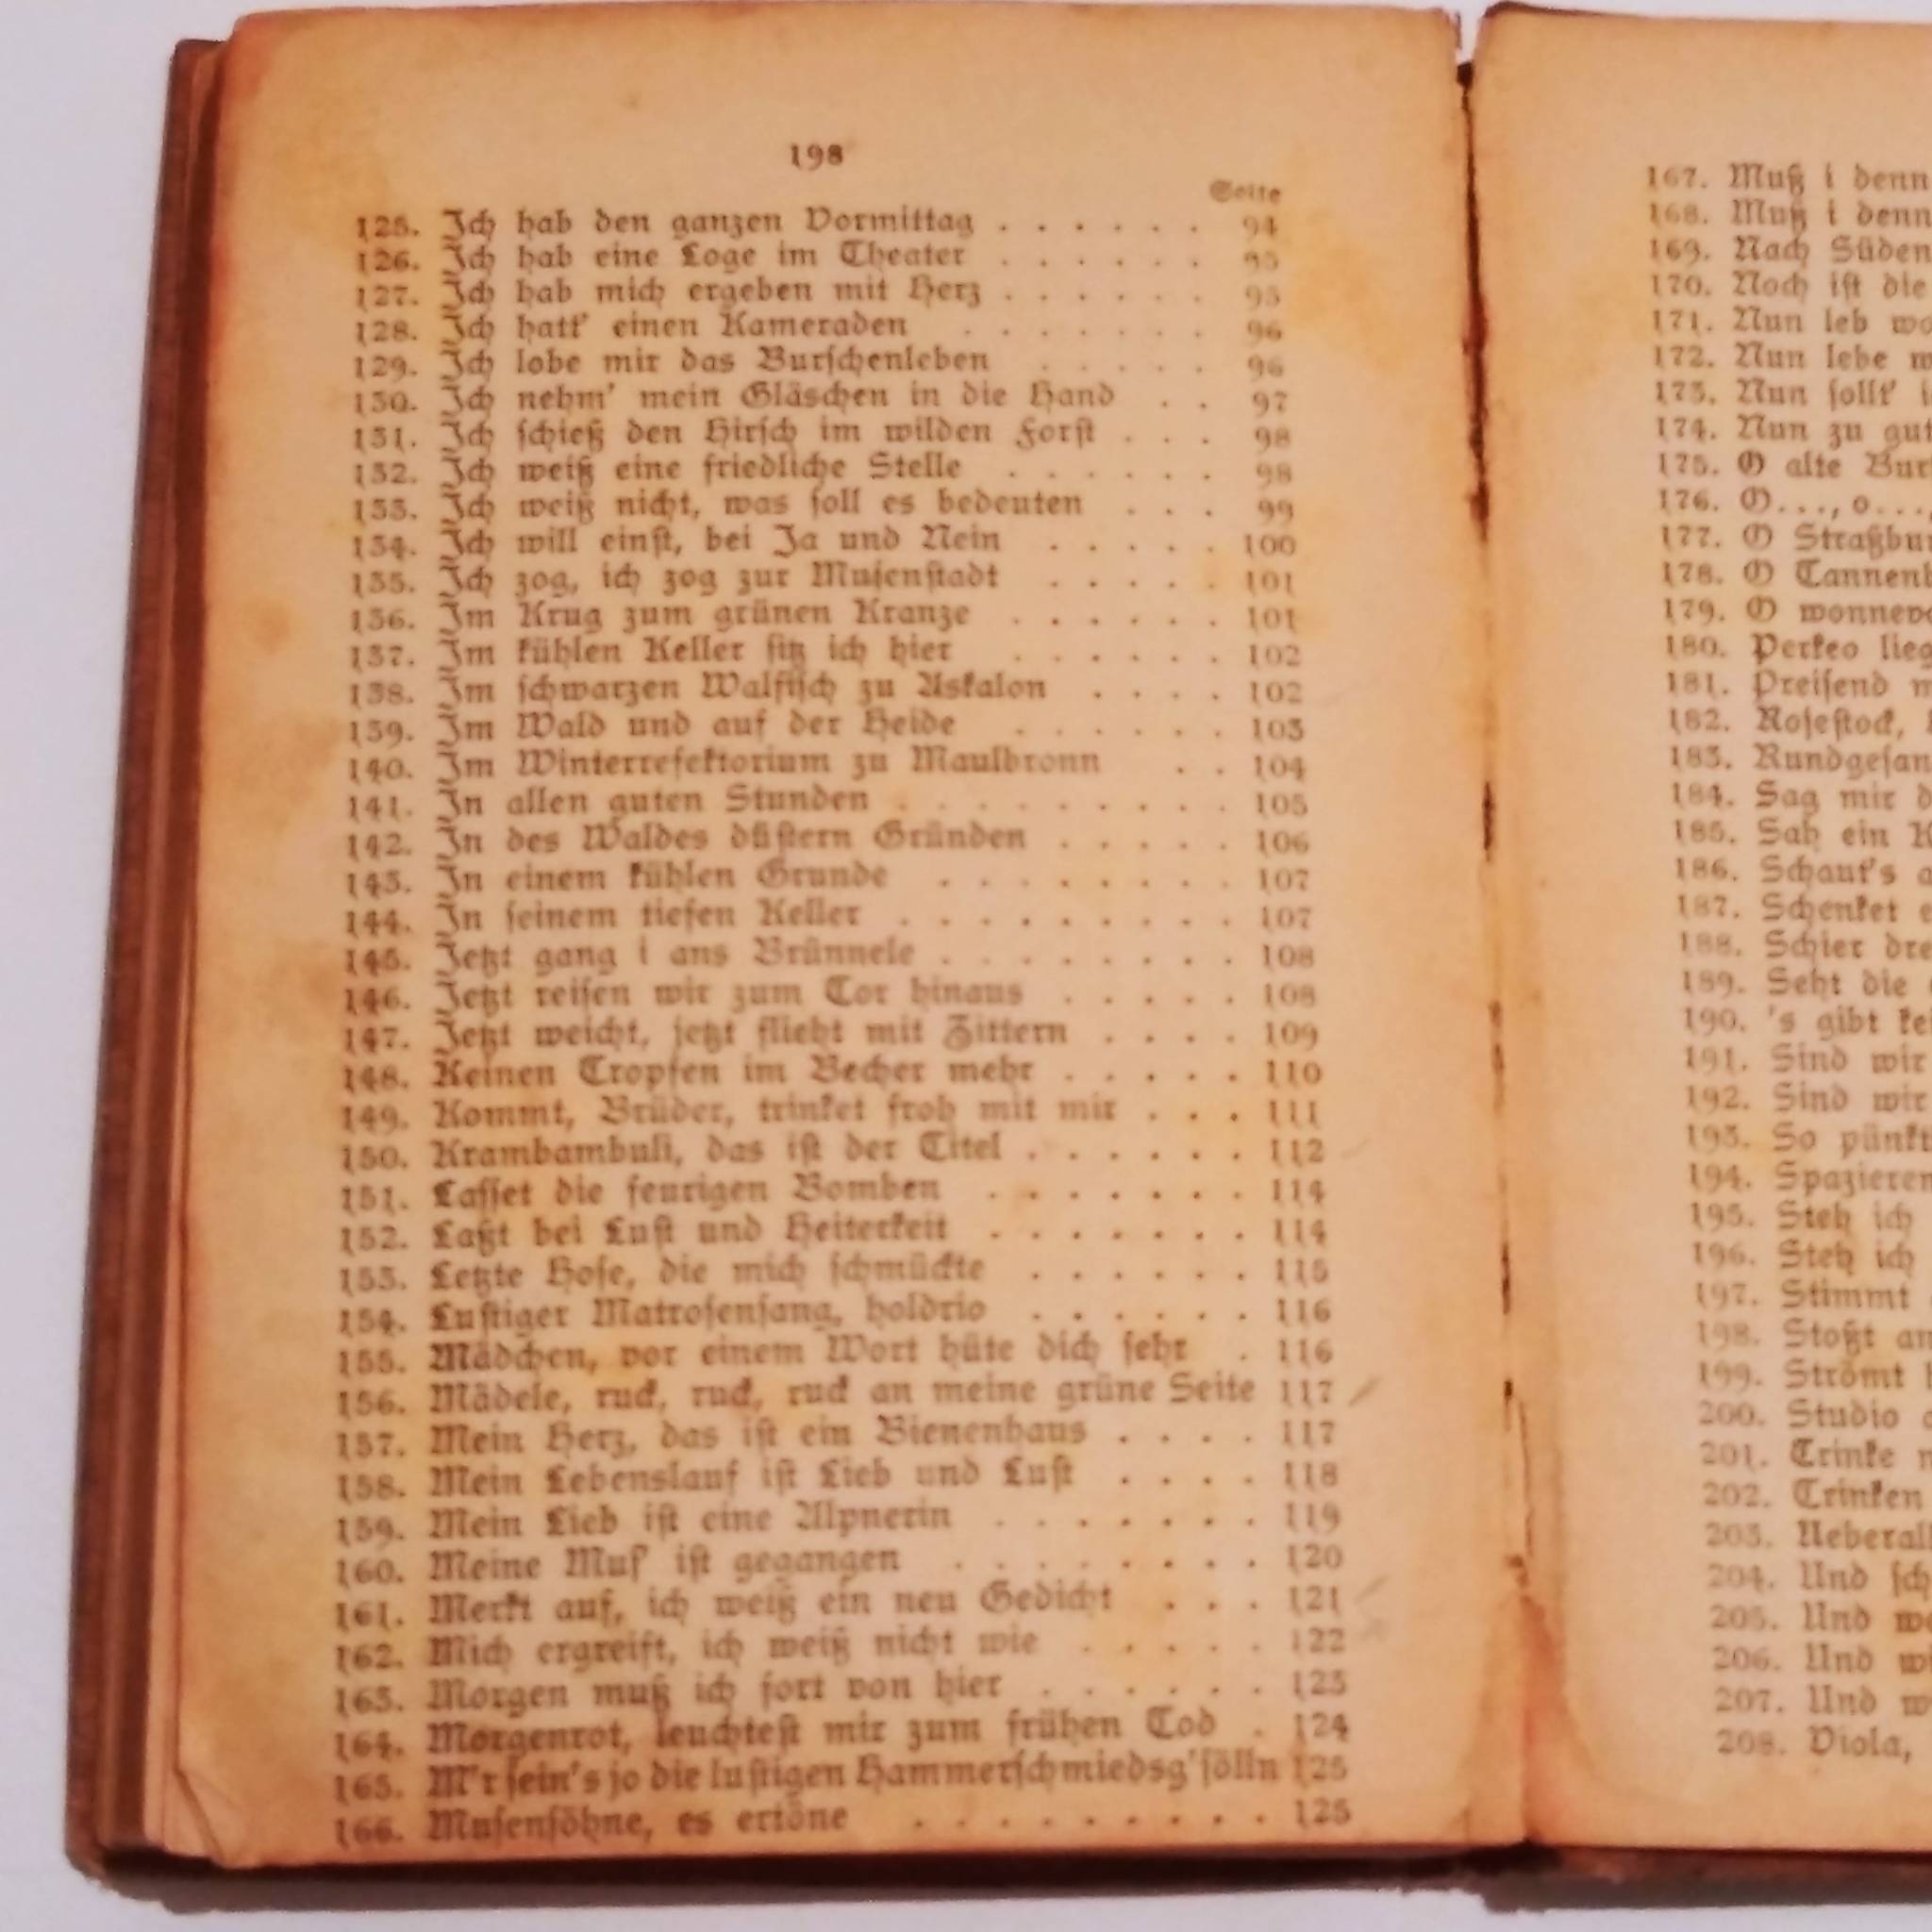 198
Seite
125. Ich hab den ganzen Vormittag . . . . . . 94
126. Ich hab eine Loge im Theater . . . . . . 95
127. Ich hab mich ergeben mit Herz . . . . . . 95
128. Ich hatt' einen Kameraden . . . . . . . 96
129. Ich lobe mir das Burschenleben . . . . . 96
130. Ich nehm' mein Gläschen in die Hand . . 97
131. Ich schieß den Hirsch im wilden Forst . . . 98
132. Ich weiß eine friedliche Stelle . . . . . . 98
133. Ich weiß nicht, was soll es bedeuten . . . 99
134. Ich will einst, bei Ja und Nein . . . . . 100
135. Ich zog, ich zog zur Musenstadt . . . . . 101
136. Im Krug zum grünen Kranze . . . . . . 101
137. Im kühlen Keller sitz ich hier . . . . . . 102
138. Im schwarzen Walfisch zu Askalon . . . . 102
139. Im Wald und auf der Heide . . . . . . 103
140. Im Winterrefektorium zu Maulbronn . . 104
141. In allen guten Stunden . . . . . . . . . 105
142. In des Waldes düstern Gründen . . . . . 106
143. In einem kühlen Grunde . . . . . . . . 107
144. In seinem tiefen Keller . . . . . . . . . 107
145. Jetzt gang i ans Brünnele . . . . . . . . 108
146. Jetzt reisen wir zum Tor hinaus . . . . . 108
147. Jetzt weicht, jetzt flieht mit Zittern . . . . 109
148. Keinen Tropfen im Becher mehr . . . . . 110
149. Kommt, Brüder, trinket froh mit mir . . . 111
150. Krambambuli, das ist der Titel . . . . . . 112
151. Lasset die feurigen Bomben . . . . . . . 114
152. Laßt bei Lust und Heiterkeit . . . . . . . 114
153. Letzte Hose, die mich schmückte . . . . . . 115
154. Lustiger Matrosensang, holdrio . . . . . . 116
155. Mädchen, vor einem Wort hüte dich sehr . 116
156. Mädele, ruck, ruck, ruck an meine grüne Seite 117
157. Mein Herz, das ist ein Bienenhaus . . . . 117
158. Mein Lebenslauf ist Lieb und Lust . . . . 118
159. Mein Lieb ist eine Alpnerin . . . . . . . 119
160. Meine Mus' ist gegangen . . . . . . . . 120
161. Merkt auf, ich weiß ein neu Gedicht . . . 121
162. Mich ergreift, ich weiß nicht wie . . . . . 122
163. Morgen muß ich fort von hier . . . . . . 123
164. Morgenrot, leuchtest mir zum frühen Tod . 124
165. M'r sein's jo die lustigen Hammerschmiedsg'sölln 125
166. Musensöhne, es ertöne . . . . . . . . . 125
167. Muß i denn
168. Muß i denn
169. Nach Süden
170. Noch ist die
171. Nun leb
172. Nun lebe
173. Nun sollt'
174. Nun zu
175. O alte
176. O..., o...,
177. O
178. O
179. O
180. Perkeo
181. Preisend
182. Rosestock,
183.
184. Sag mir
185. Sah ein
186. Schaut's
187. Schenket
188. Schier
189. Seht die
190. 's gibt
191. Sind wir
192. Sind wir
193. So
194.
195. Steh ich
196. Steh ich
197. Stimmt
198. Stoßt
199. Strömt
200. Studio
201. Trinke
202. Trinken
203.
204. Und
205. Und
206. Und
207. Und
208. Viola,